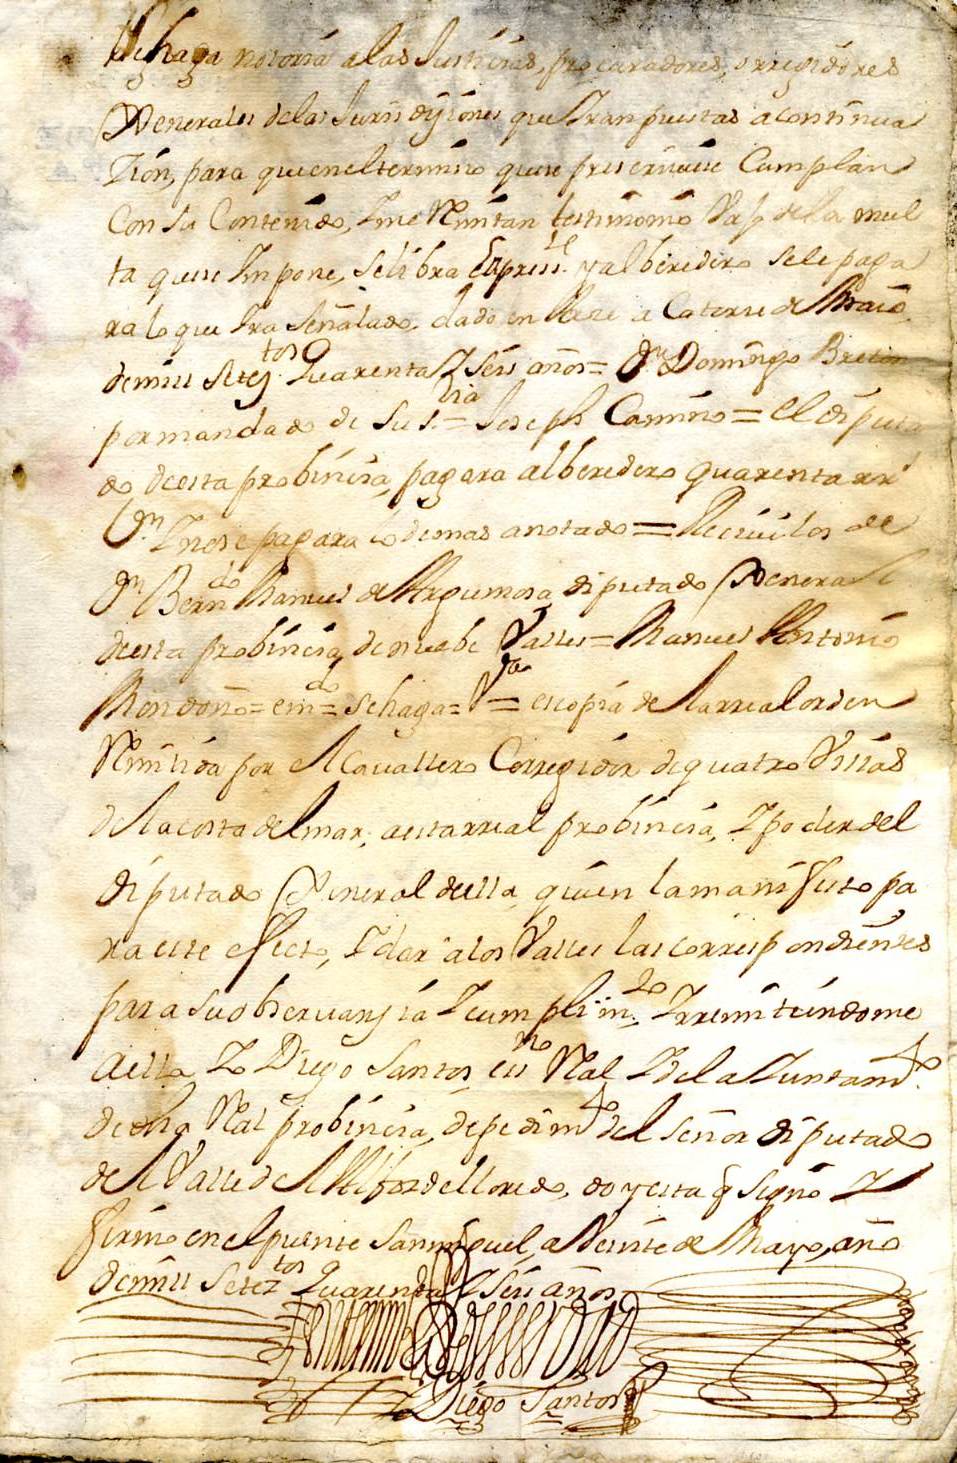 Se haga notoria a las Justicias, procuradores, o rregidores
Xenerales de las Jurisdiziones que Iran puestas a continua
zion, para que en el termino que se prescriuiere Cumplan
Con su Contenido, I me Rimitan testimonio Vajo de la mul
ta que se Impone, se libra Express.te y al beredero se le paga
ra lo que Ira Señalado. dado en Laredo a Catorze de Maio
de mill Setez.tos Quarenta I Seis años = D.n Domingo Breton
por mandado de Su s.ria = Joseph Camino = El diputa
do de esta probincia, pagara al beredero quarenta rr.s
V.n I no se pagara lo demas anotado = Reciuilos de
D.n Bern.do Manuel de Argumosa diputado Xeneral
de esta probincia de nuebe Valles = Manuel Antonio
Rendon = em.do = se haga = V.a = es copia de la rreal orden
Rimitida por el Cavallero Corregidor de quatro Villas
de la costa del mar, a esta rreal probincia, I poder del
diputado Xeneral de ella, quien la manifesto pa
ra este efecto, I dar a los Valles las correspondientes
para su obseruanzia I cumplim.to I rremitiendome
a ella Io Diego Santos ess.no Real I del a Iuntam.to
de dha Real probincia, de pedim.to del señor diputado
de el Valle de Alfoz de lloredo, doy esta q signo I
firmo en el puente San miguel, a Veinte de Mayo, año
de mill Setez.tos Quarenta I Seis años
Diego Santos